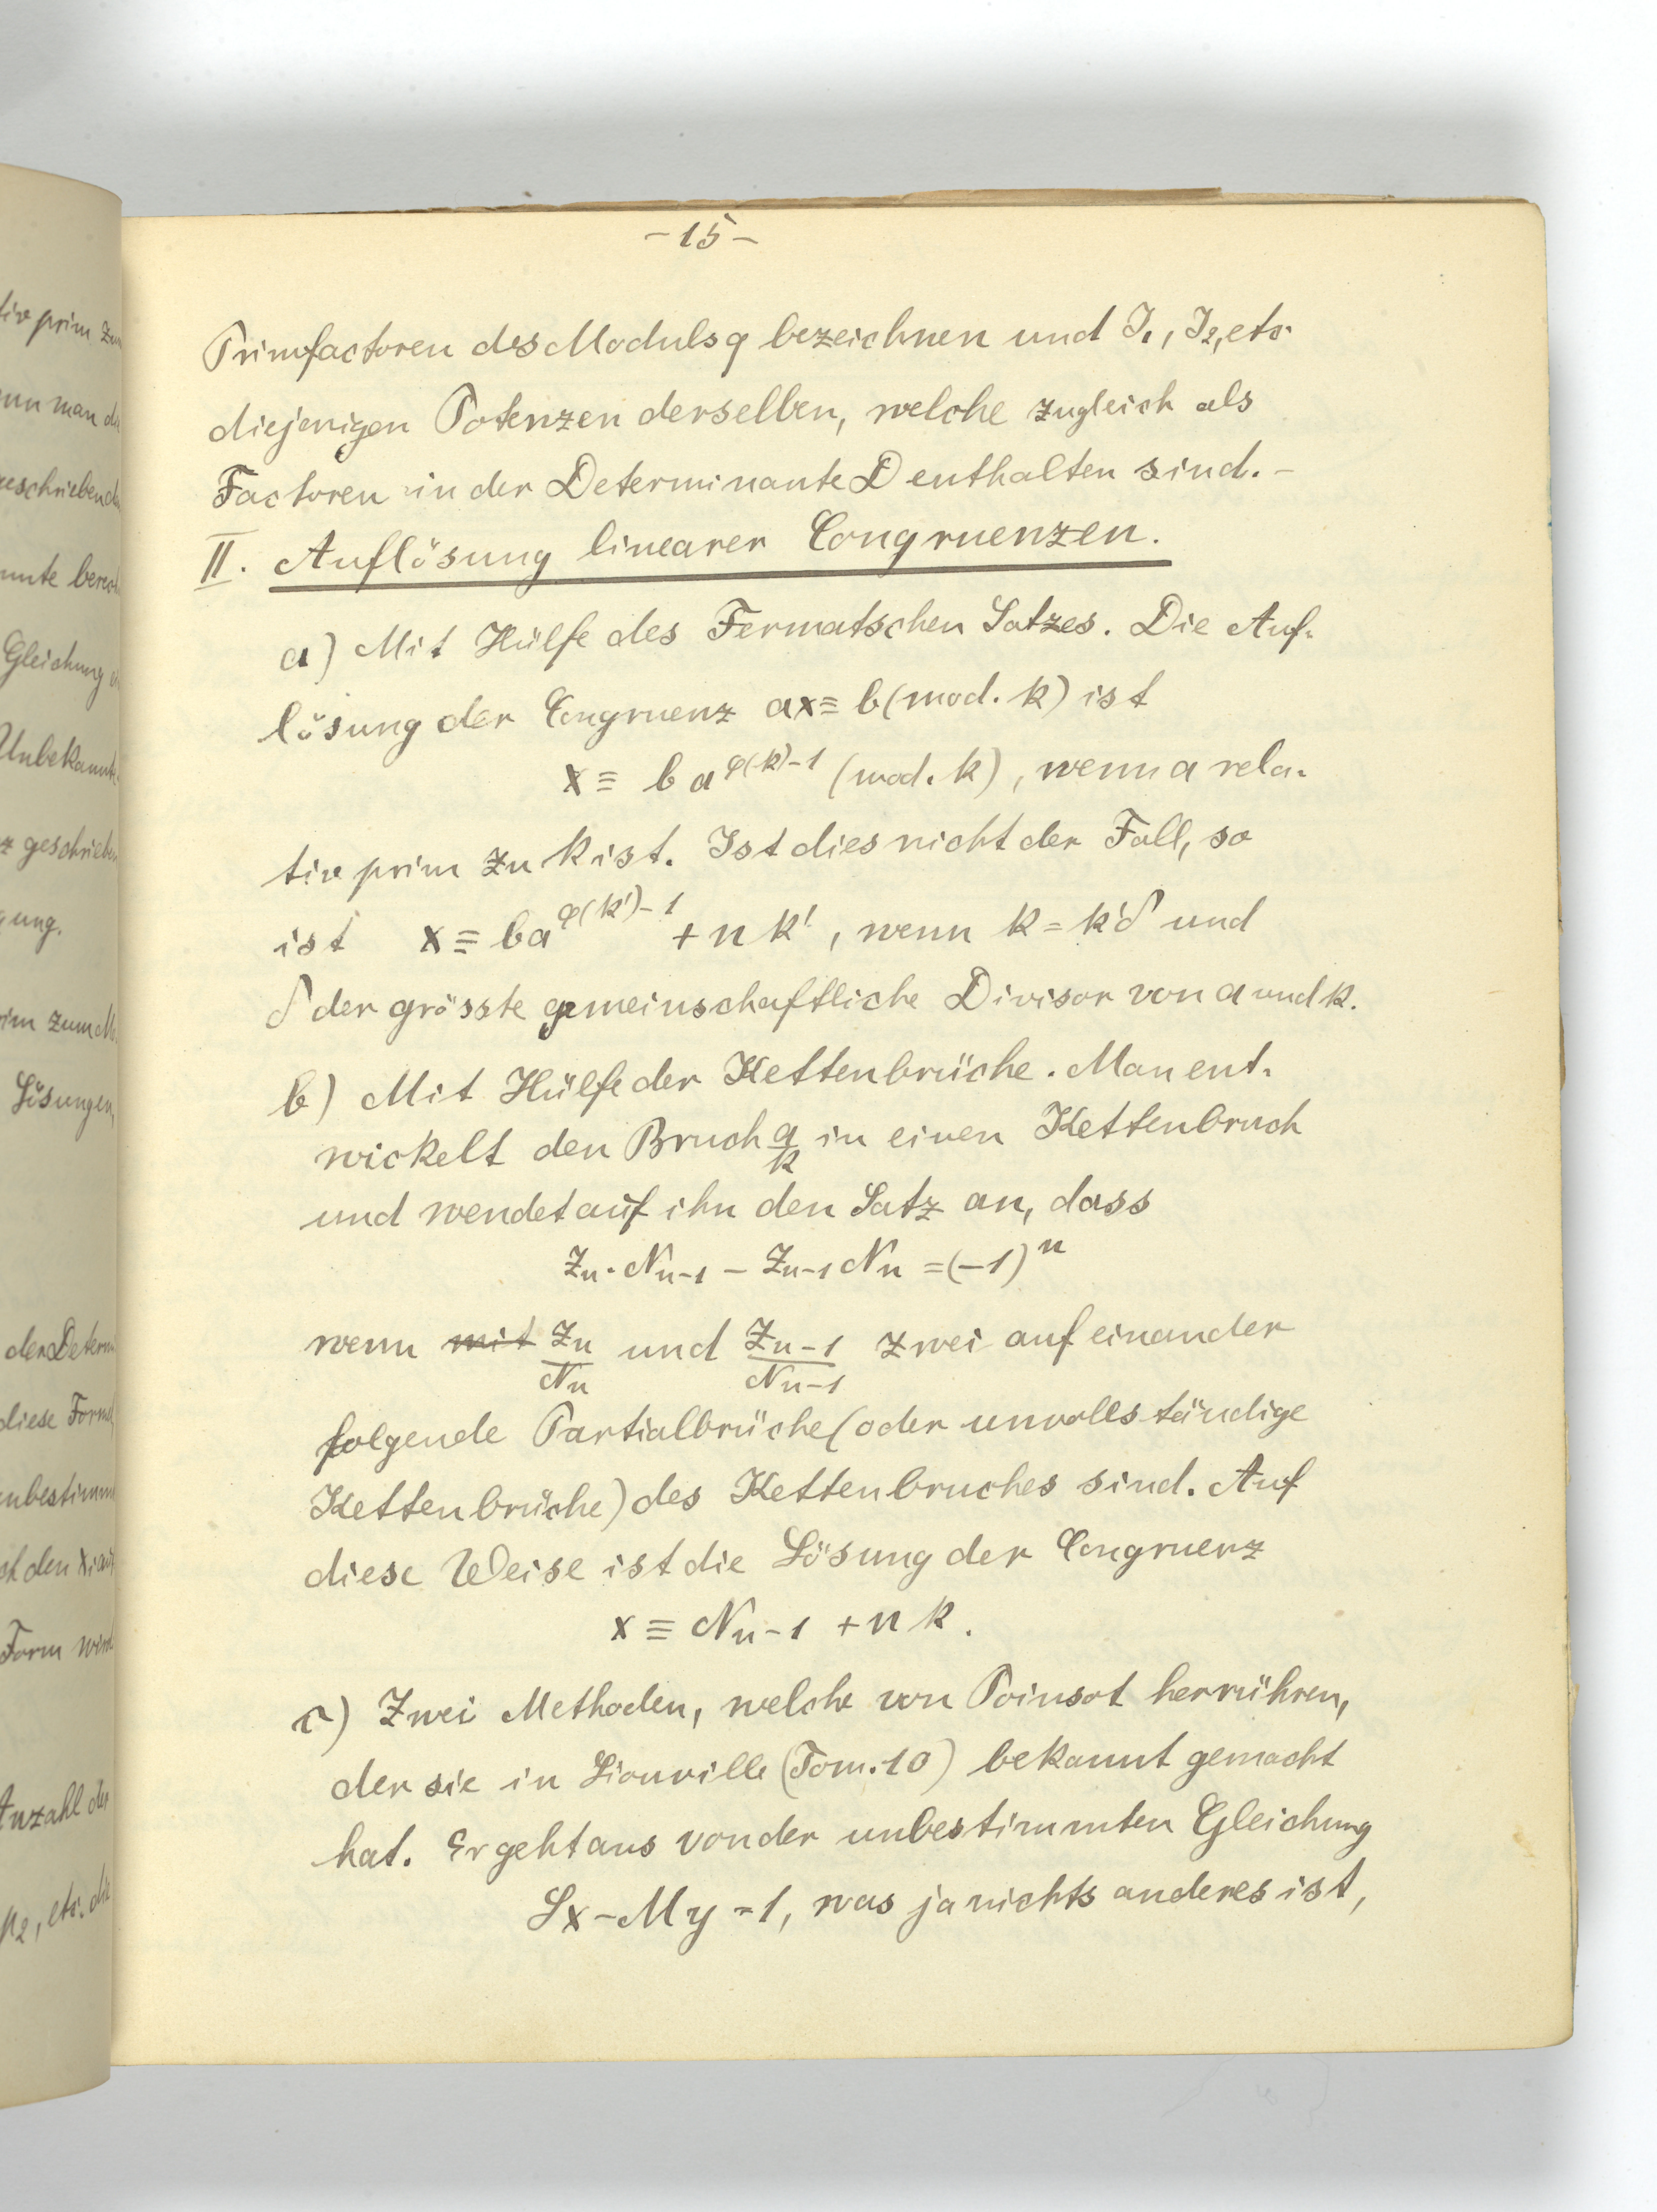 tiv prim zu
man
geschrieben
Gleichung
Unbekannte
geschrieben
gung.
Lösungen,
der Determi
diese Formel
unbestimm
Form wird
Anzahl der
p2, etc. die
-15-
Primfactoren des Moduls q bezeichnen und I1, I2, etc.
diejenigen Potenzen derselben, welche zugleich als
Factoren in der Determinante D enthalten sind. -
II. Auflösung linearer Congruenzen.
a) Mit Hülfe des Fermatschen Satzes. Die Auf-
lösung der Congruenz ax ≡ b (mod. k) ist
x ≡ b a^φ(k)-1 (mod. k), wenn a rela-
tiv prim zu k ist. Ist dies nicht der Fall, so
ist x ≡ ba^φ(k')-1 + n k', wenn k = k'δ und
δ der grösste gemeinschaftliche Divisor von a und k.
b) Mit Hülfe der Kettenbrüche. Man ent-
wickelt den Bruch a/k in einen Kettenbruch
und wendet auf ihn den Satz an, dass
Zn · Nn-1 - Zn-1 Nn = (-1)^n
wenn mit Zn/Nn und Zn-1/Nn-1 zwei auf einander
folgende Partialbrüche (oder unvollständige
Kettenbrüche) des Kettenbruches sind. Auf
diese Weise ist die Lösung der Congruenz
x ≡ Nn-1 + n k.
c) Zwei Methoden, welche von Poinsot herrühren,
der sie in Liouville (Tom. 10) bekannt gemacht
hat. Er geht aus von der unbestimmten Gleichung
Lx - My = 1, was ja nichts anderes ist,